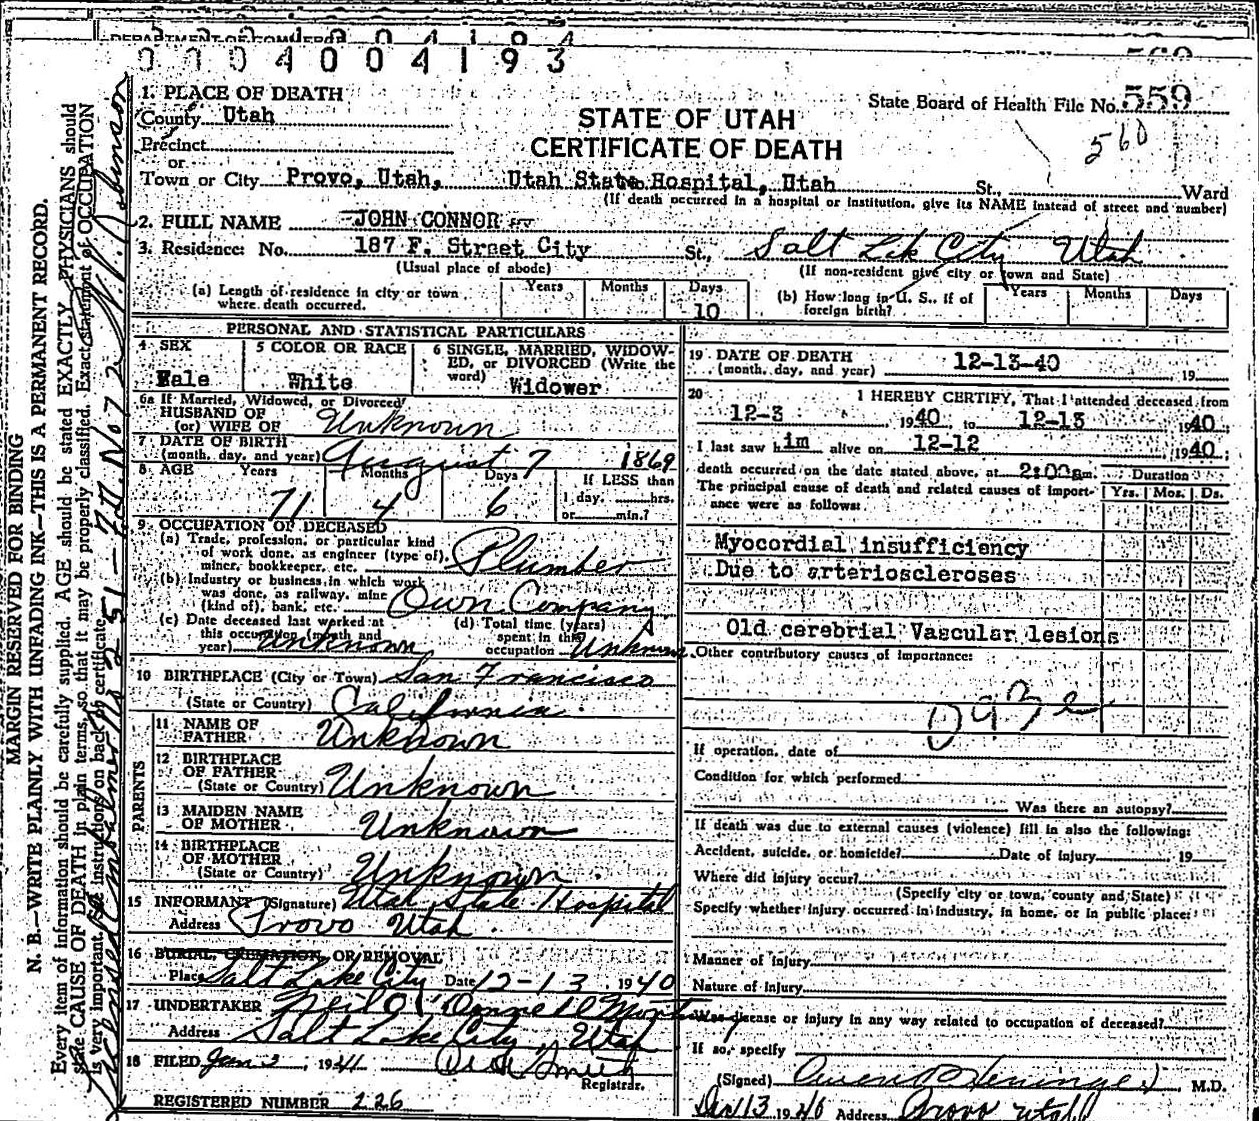 DEPARTMENT OF COMMERCE
0 0 0 4 0 0 4 1 9 3
1. PLACE OF DEATH
County Utah
Precinct
or
Town or City Provo, Utah, Utah State Hospital, Utah St., Ward
(If death occurred in a hospital or institution, give its NAME instead of street and number)
STATE OF UTAH
CERTIFICATE OF DEATH
State Board of Health File No. 559
560
2. FULL NAME JOHN CONNOR
3. Residence: No. 187 F. Street City St., Salt Lak City Utah
(Usual place of abode) (If non-resident give city or town and State)
(a) Length of residence in city or town where death occurred. Years Months Days 10
(b) How long in U. S., if of foreign birth? Years Months Days
PERSONAL AND STATISTICAL PARTICULARS
4 SEX Male
5 COLOR OR RACE White
6 SINGLE, MARRIED, WIDOWED, or DIVORCED (Write the word) Widower
6a If Married, Widowed, or Divorced
HUSBAND OF
(or) WIFE OF Unknown
7 DATE OF BIRTH
(month, day, and year) August 7 1869
8 AGE Years 71 Months 4 Days 6 If LESS than 1 day, hrs. or min.?
9 OCCUPATION OF DECEASED
(a) Trade, profession, or particular kind
of work done, as engineer (type of),
miner, bookkeeper, etc. Plumber
(b) Industry or business in which work
was done, as railway, mine
(kind of), bank, etc. Own Company
(c) Date deceased last worked at
this occupation (month and
year) Unknown
(d) Total time (years)
spent in this
occupation Unknown
10 BIRTHPLACE (City or Town) San Francisco
(State or Country) California
PARENTS
11 NAME OF
FATHER Unknown
12 BIRTHPLACE
OF FATHER
(State or Country) Unknown
13 MAIDEN NAME
OF MOTHER Unknown
14 BIRTHPLACE
OF MOTHER
(State or Country) Unknown
15 INFORMANT (Signature) Utah State Hospital
Address Provo Utah
16 BURIAL, CREMATION, OR REMOVAL
Place Salt Lake City Date 12-13 1940
17 UNDERTAKER Neil O'Donnell Mort
Address Salt Lake City, Utah
18 FILED Jan 3, 1941
Registrar.
REGISTERED NUMBER 226
19 DATE OF DEATH
(month, day, and year) 12-13-40 19
20 I HEREBY CERTIFY, That I attended deceased from
12-3 1940 to 12-13 1940
I last saw him alive on 12-12, 1940;
death occurred on the date stated above, at 2:00am. Duration
The principal cause of death and related causes of importance were as follows: Yrs. Mos. Ds.
Myocordial insufficiency
Due to arterioscleroses
Old cerebrial Vascular lesions
Other contributory causes of importance:
If operation, date of
Condition for which performed
Was there an autopsy?
If death was due to external causes (violence) fill in also the following:
Accident, suicide, or homicide? Date of injury 19
Where did injury occur?
(Specify city or town, county and State)
Specify whether injury occurred in industry, in home, or in public place:
Manner of Injury
Nature of Injury
Was disease or injury in any way related to occupation of deceased?
If so, specify
(Signed) Owen P. Heninger, M.D.
Dec 13 1940 Address Provo Utah
MARGIN RESERVED FOR BINDING
N. B.—WRITE PLAINLY WITH UNFADING INK—THIS IS A PERMANENT RECORD.
Every item of information should be carefully supplied. AGE should be stated EXACTLY. PHYSICIANS should
state CAUSE OF DEATH in plain terms, so that it may be properly classified. Exact statement of OCCUPATION
is very important. See instructions on back of certificate.